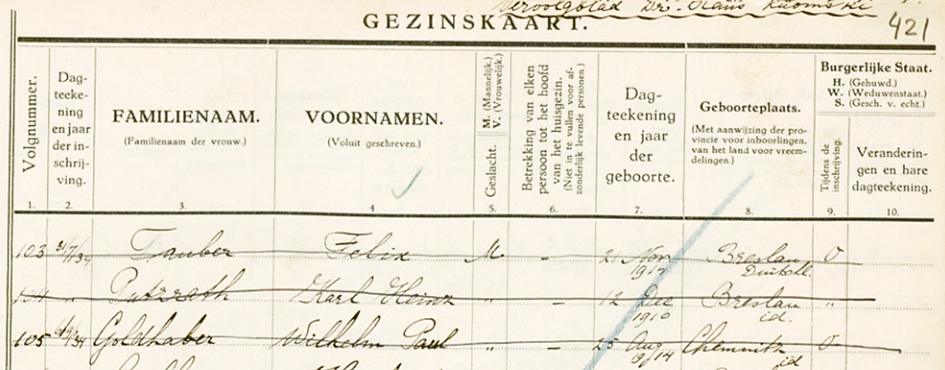 Vervolgblad Dr. Klaus
GEZINSKAART.
421
Volgnummer.
Dag-
teeke-
ning
en jaar
der in-
schrij-
ving.
FAMILIENAAM.
(Familienaam der vrouw.)
VOORNAMEN.
(Voluit geschreven.)
Geslacht.
M. (Mannelijk.)
V. (Vrouwelijk.)
Betrekking van elken
persoon tot het hoofd
van het huisgezin.
(Niet in te vullen voor af-
zonderlijk levende personen.)
Dag-
teekening
en jaar
der
geboorte.
Geboorteplaats.
(Met aanwijzing der pro-
vincie voor inboorlingen,
van het land voor vreem-
delingen.)
Burgerlijke Staat.
H. (Gehuwd.)
W. (Weduwenstaat.)
S. (Gesch. v. echt.)
Tijdens de
inschrijving.
Veranderin-
gen en hare
dagteekening.
1. 2. 3. 4 5. 6. 7. 8. 9. 10.
103 31/7/34 Tauber Felix M - 21 Nov Breslau O
Duitschl.
104 " Putzrath Karl Heinz " - 12 Dec Breslau "
1910 id.
105 Goldhaber Wilhelm Paul " - 25 Aug Chemnitz O
1914 id